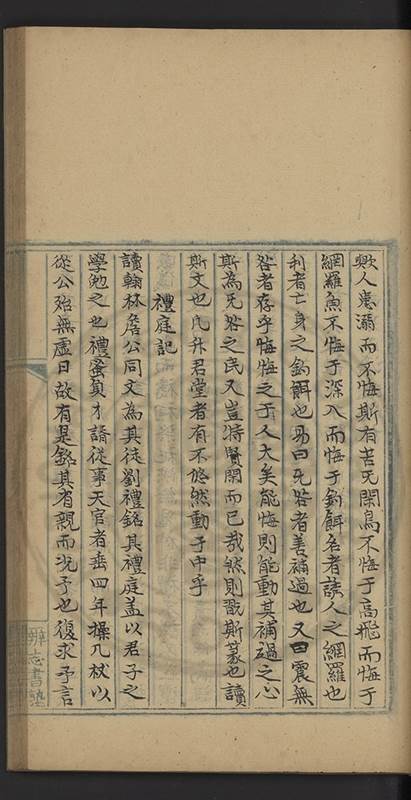 歟人惟溺而不悔斯有苦旡閑鳥不悔于高飛而悔于
網羅魚不悔于深入而悔于釣餌名者誘人之網羅也
利者亡身之釣餌也易曰旡咎者善補過也又曰震無
咎者存乎悔悔之于人大矣能悔則能動其補過之心
斯為旡咎之民又豈特賢閑而已哉然則翫斯篆也讀
斯文也凡升君堂者有不悠然動于中乎
禮庭記
讀翰林詹公同文為其徒劉禮銘其禮庭盖以君子之
學勉之也禮蚤負才諝從事天官者垂四年操几杖以
從公殆無虛日故有是銘其有親而況予也復求予言
辨志書塾